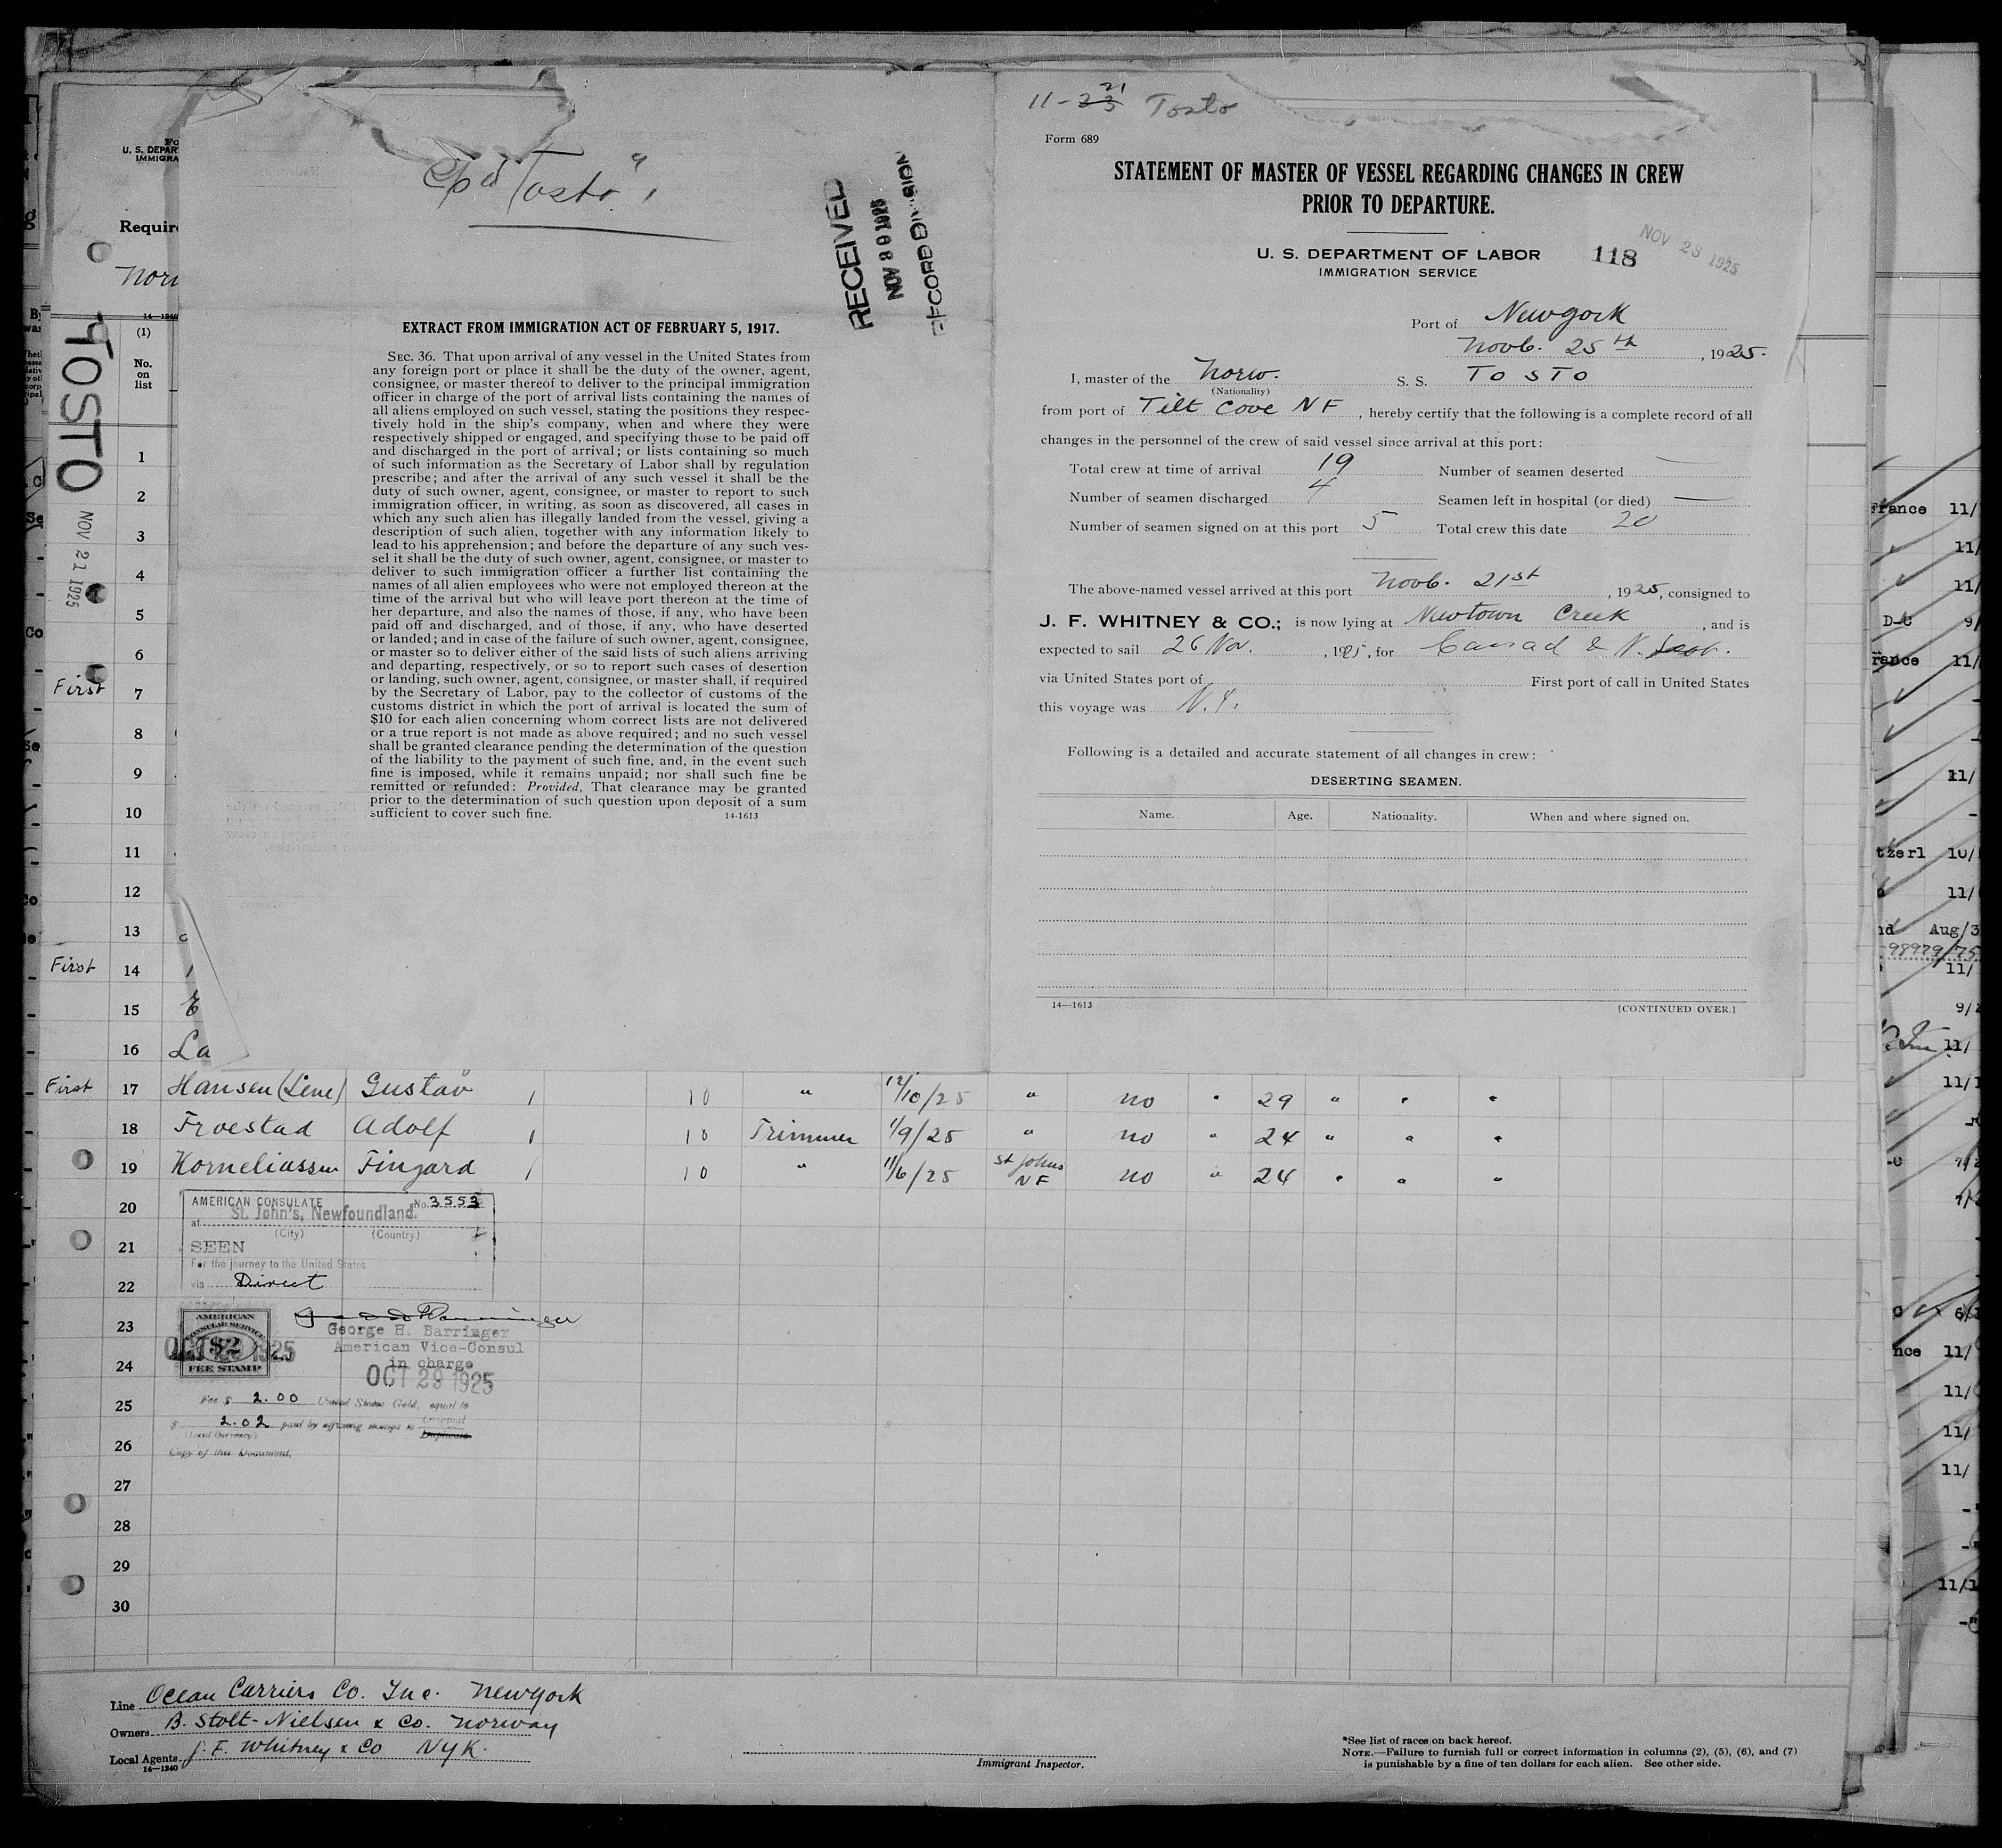 11-23 21 Tosto
Form 689
STATEMENT OF MASTER OF VESSEL REGARDING CHANGES IN CREW
PRIOR TO DEPARTURE.
U. S. DEPARTMENT OF LABOR
IMMIGRATION SERVICE
118
NOV 28 1925
Port of Newyork
Novb. 25th, 1925.
I, master of the Norw. S. S. TOSTO
(Nationality)
from port of Tilt Cove NF, hereby certify that the following is a complete record of all
changes in the personnel of the crew of said vessel since arrival at this port:
Total crew at time of arrival 19 Number of seamen deserted —
Number of seamen discharged 4 Seamen left in hospital (or died) —
Number of seamen signed on at this port 5 Total crew this date 20
The above-named vessel arrived at this port Novb. 21st, 1925, consigned to
J. F. WHITNEY & CO.; is now lying at Newtown Creek, and is
expected to sail 26 Nov., 1925, for
via United States port of First port of call in United States
this voyage was N.Y.
Following is a detailed and accurate statement of all changes in crew:
DESERTING SEAMEN.
Name. Age. Nationality. When and where signed on.
14—1613 [CONTINUED OVER.]
"Tosto"
RECEIVED
NOV 30 1925
RECORD DIVISION
EXTRACT FROM IMMIGRATION ACT OF FEBRUARY 5, 1917.
SEC. 36. That upon arrival of any vessel in the United States from
any foreign port or place it shall be the duty of the owner, agent,
consignee, or master thereof to deliver to the principal immigration
officer in charge of the port of arrival lists containing the names of
all aliens employed on such vessel, stating the positions they respec-
tively hold in the ship's company, when and where they were
respectively shipped or engaged, and specifying those to be paid off
and discharged in the port of arrival; or lists containing so much
of such information as the Secretary of Labor shall by regulation
prescribe; and after the arrival of any such vessel it shall be the
duty of such owner, agent, consignee, or master to report to such
immigration officer, in writing, as soon as discovered, all cases in
which any such alien has illegally landed from the vessel, giving a
description of such alien, together with any information likely to
lead to his apprehension; and before the departure of any such ves-
sel it shall be the duty of such owner, agent, consignee, or master to
deliver to such immigration officer a further list containing the
names of all alien employees who were not employed thereon at the
time of the arrival but who will leave port thereon at the time of
her departure, and also the names of those, if any, who have been
paid off and discharged, and of those, if any, who have deserted
or landed; and in case of the failure of such owner, agent, consignee,
or master so to deliver either of the said lists of such aliens arriving
and departing, respectively, or so to report such cases of desertion
or landing, such owner, agent, consignee, or master shall, if required
by the Secretary of Labor, pay to the collector of customs of the
customs district in which the port of arrival is located the sum of
$10 for each alien concerning whom correct lists are not delivered
or a true report is not made as above required; and no such vessel
shall be granted clearance pending the determination of the question
of the liability to the payment of such fine, and, in the event such
fine is imposed, while it remains unpaid; nor shall such fine be
remitted or refunded: Provided, That clearance may be granted
prior to the determination of such question upon deposit of a sum
sufficient to cover such fine.
14-1613
U. S. DEPAR
IMMIGRA
Requir
Nor
14—1340
TOSTO
NOV 21 1925
(1)
No.
on
list
1
2
3
4
5
6
First 7
8
9
10
11
12
13
First 14
15 E
16 La
First 17 Hansen (Lene) Gustav 1 10 " 12/10/25 " no " 29 " " "
18 Froestad Adolf 1 10 Trimmer 1/9/25 " no " 24 " " "
19 Korneliassen Fingard 1 10 " 11/6/25 St Johns NF no " 24 " " "
20
21
22
23
24
25
26
27
28
29
30
AMERICAN CONSULATE No. 3553
at St. John's, Newfoundland.
(City) (Country)
SEEN
For the journey to the United States
via Direct
AMERICAN
CONSULAR SERVICE
$2
FEE STAMP
OCT 29 1925
George H. Barringer
American Vice-Consul
in charge
OCT 29 1925
Fee $ 2.00 United States Gold, equal to
$ 2.02 paid by affixing stamps to Original
(Local Currency) Duplicate
Copy of this Document.
Line Ocean Carriers Co. Inc. Newyork
Owners B. Stolt-Nielsen & Co. Norway
Local Agents J. F. Whitney & Co NYK.
14—1340
Immigrant Inspector.
*See list of races on back hereof.
NOTE.—Failure to furnish full or correct information in columns (2), (5), (6), and (7)
is punishable by a fine of ten dollars for each alien. See other side.
France 11/
D-C 9/
rance 11/
tzerl 10/
Aug/3
98979/75
nce 11/